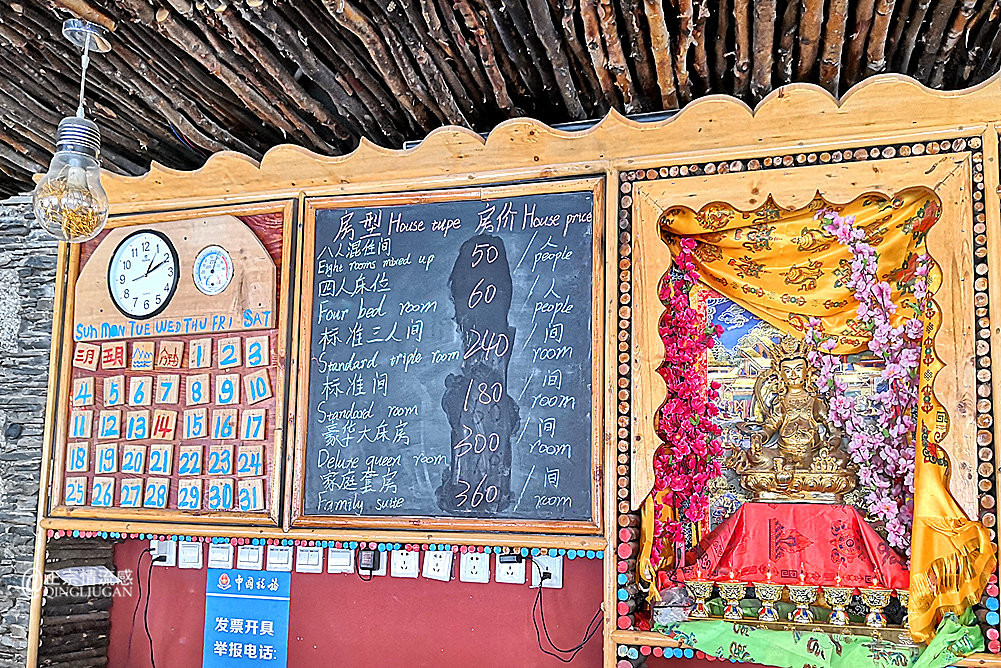 房型 House type 房价 House price
八人混住间 50 /人
Eight rooms mixed up /people
四人床位 60 /人
Four bed room /people
标准三人间 240 /间
Standard triple room /room
标准间 180 /间
Standard room /room
豪华大床房 300 /间
Deluxe queen room /room
家庭套房 360 /间
Family suite /room
SUN MON TUE WED THU FRI SAT
1 2 3
4 5 6 7 8 9 10
11 12 13 14 15 16 17
18 19 20 21 22 23 24
25 26 27 28 29 30 31
12 1 2 3 4 5 6 7 8 9 10 11
中国税务
发票开具
举报电话:
QINGLIUGAN